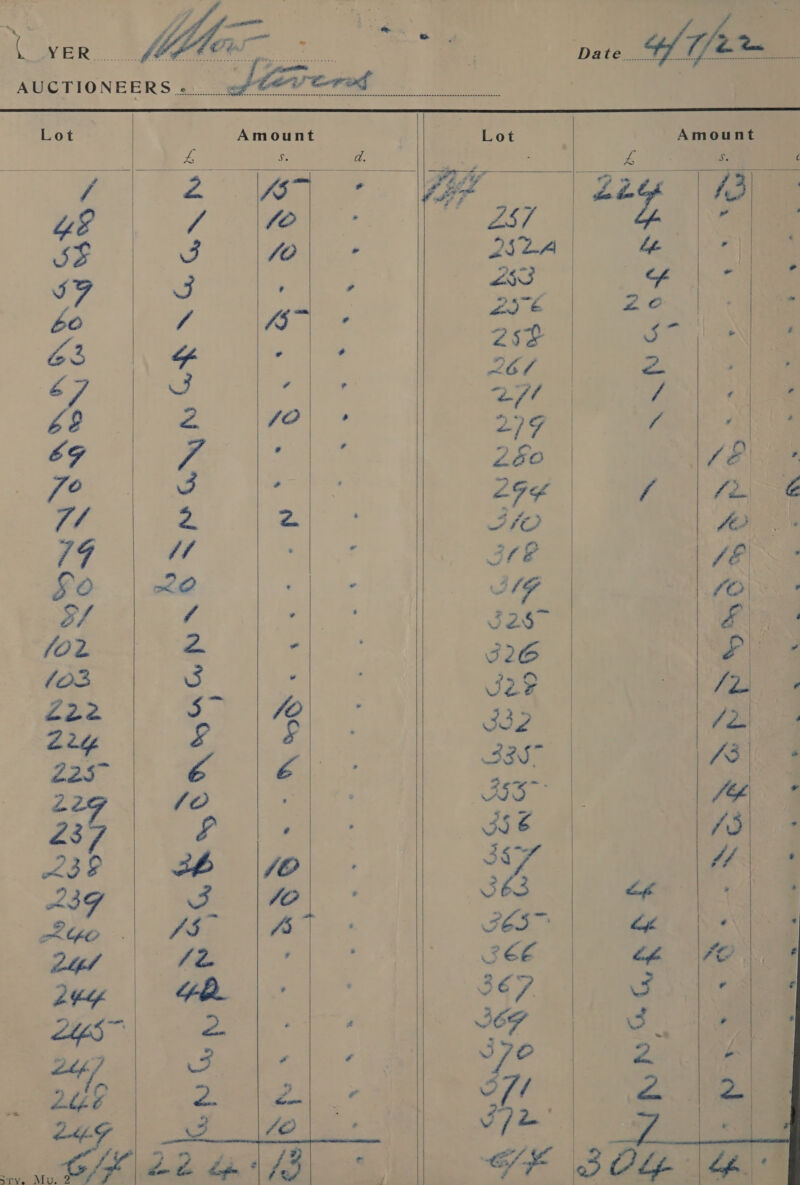 YER
Date 4/7/22
AUCTIONEERS Stevens
Lot Amount
£ s. d.
1 2 15 -
48 1 10 -
58 3 10 -
59 3 - -
60 1 15 -
63 4 - -
67 3 - -
68 2 10 -
69 7 - -
70 3 - -
71 2 2 -
79 11 - -
80 20 - -
81 1 - -
102 2 - -
103 3 - -
222 5 10 -
224 8 8 -
225 6 6 -
229 10 - -
237 8 - -
238 36 10 -
239 3 10 -
240 15 15 -
241 12 - -
244 42 - -
245 2 - -
247 3 - -
248 2 2 -
249 3 10 -
C/F 224 13 -
Lot Amount
£ s.
224 13
251 4 - -
252A 4 - -
253 4 - -
256 20 - -
258 5 - -
261 2 - -
271 1 - -
279 1 - -
280 18 -
294 1 12 6
310 10 -
318 18 -
319 10 -
325 8 -
326 8 -
328 12 -
332 12 -
335 13 -
355 14 -
356 13 -
357 11 -
363 4 - -
365 4 - -
366 4 10 -
367 3 - -
369 3 - -
370 2 - -
371 2 2 -
372 7 - -
C/F 304 4 -
Sry. Mu. 2